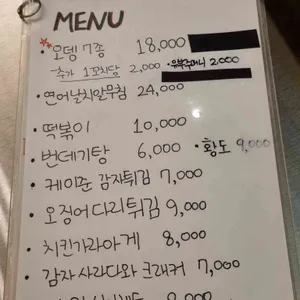 MENU
오뎅 7종 18,000
-추가 1꼬치당 2,000 ·유부주머니 2,000
·연어날치알무침 24,000
·떡볶이 10,000
·번데기탕 6,000 ·황도 9,000
·케이준 감자튀김 7,000
·오징어다리튀김 9,000
·치킨가라아게 8,000
·감자 사라다와 크래커 7,000